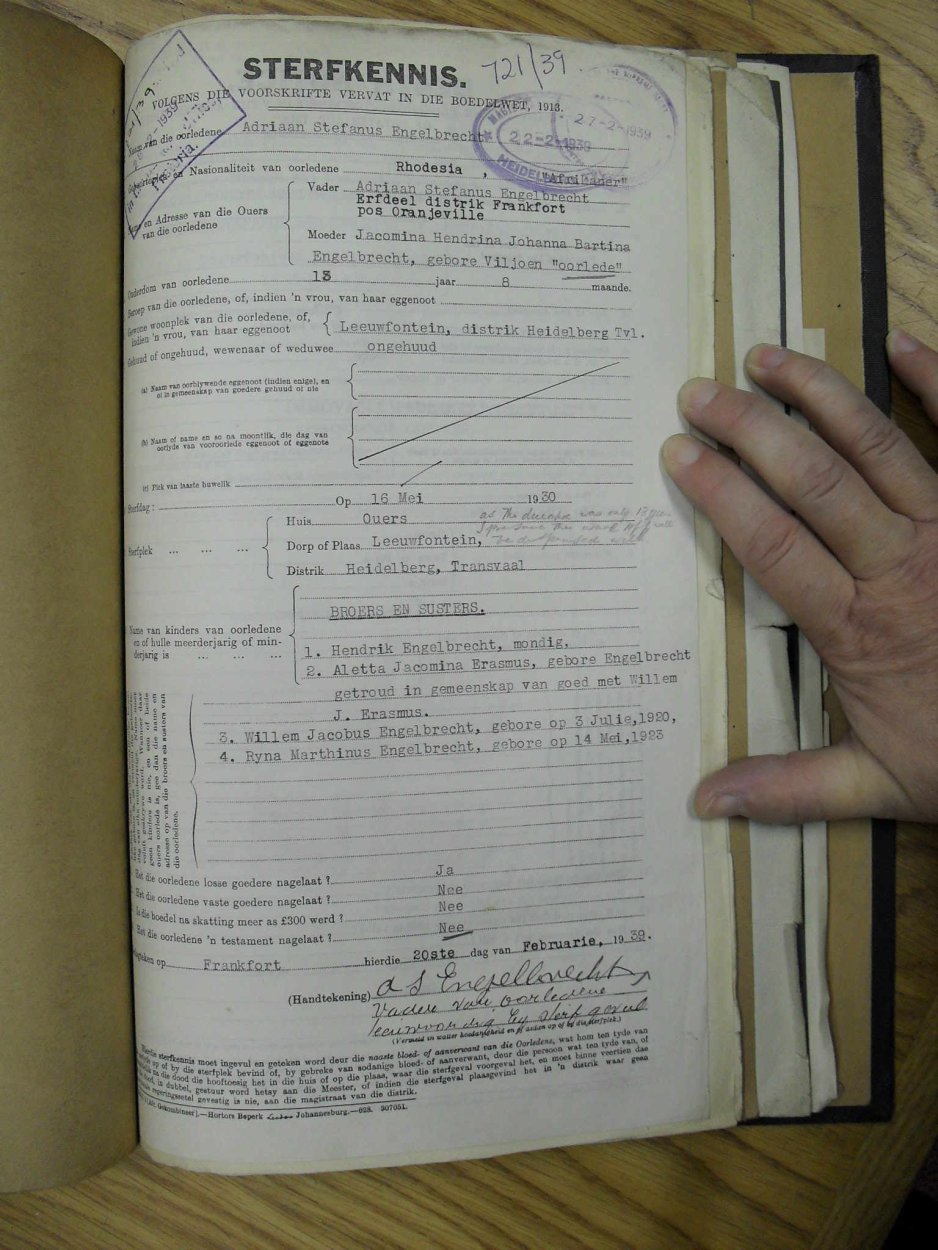 STERFKENNIS.
721/39
VOLGENS DIE VOORSKRIFTE VERVAT IN DIE BOEDELWET, 1913.
27-2-1939
22-2-1939
HEIDELB
van die oorledene Adriaan Stefanus Engelbrecht
en Nasionaliteit van oorledene Rhodesia , "Afrikaner"
Vader Adriaan Stefanus Engelbrecht
Erfdeel distrik Frankfort
pos Oranjeville
en Adresse van die Ouers
van die oorledene
Moeder Jacomina Hendrina Johanna Bartina
Engelbrecht, gebore Viljoen "oorlede"
Ouderdom van oorledene 13 jaar 8 maande.
Beroep van die oorledene, of, indien 'n vrou, van haar eggenoot
Gewone woonplek van die oorledene, of,
indien 'n vrou, van haar eggenoot Leeuwfontein, distrik Heidelberg Tvl.
Gehuud of ongehuud, wewenaar of weduwee ongehuud
(a) Naam van oorblywende eggenoot (indien enige), en
of in gemeenskap van goedere gehuud of nie
(b) Naam of name en so na moontlik, die dag van
oorlyde van vooroorlede eggenoot of eggenote
(c) Plek van laaste huwelik
Sterfdag: Op 16 Mei 1930
Huis Ouers
as the
Sterfplek ... ... ... Dorp of Plaas Leeuwfontein,
Distrik Heidelberg, Transvaal
BROERS EN SUSTERS.
Name van kinders van oorledene
en of hulle meerderjarig of min-
derjarig is ... ... ...
1. Hendrik Engelbrecht, mondig.
2. Aletta Jacomina Erasmus, gebore Engelbrecht
getroud in gemeenskap van goed met Willem
J. Erasmus.
3. Willem Jacobus Engelbrecht, gebore op 3 Julie,1920,
4. Ryna Marthinus Engelbrecht, gebore op 14 Mei,1923
geen kinders is nie, en een of beide
ouers oorlede is, gee dan die name en
adresse op van die broers en susters van
die oorledene.
Het die oorledene losse goedere nagelaat? Ja
Het die oorledene vaste goedere nagelaat? Nee
Is die boedel na skatting meer as £300 werd? Nee
Het die oorledene 'n testament nagelaat? Nee
op Frankfort hierdie 20ste dag van Februarie, 1939.
(Handtekening) A S Engelbrecht
Vader van oorledene
teenwoordig by sterfgeval
(Vermeld in watter hoedanigheid en of anders op of by die sterfplek.)
Hierdie sterfkennis moet ingevul en geteken word deur die naaste bloed- of aanverwant van die Oorledene, wat hom ten tyde van
op of by die sterfplek bevind of, by gebreke van sodanige bloed- of aanverwant, deur die persoon wat ten tyde van, of
in die dood die hooftoesig het in die huis of op die plaas, waar die sterfgeval voorgeval het, en moet binne veertien dae
in dubbel, gestuur word hetsy aan die Meester, of indien die sterfgeval plaasgevind het in 'n distrik waar geen
gevestig is nie, aan die magistraat van die distrik.
—Hortors Beperk Johannesburg.—628. 307051.